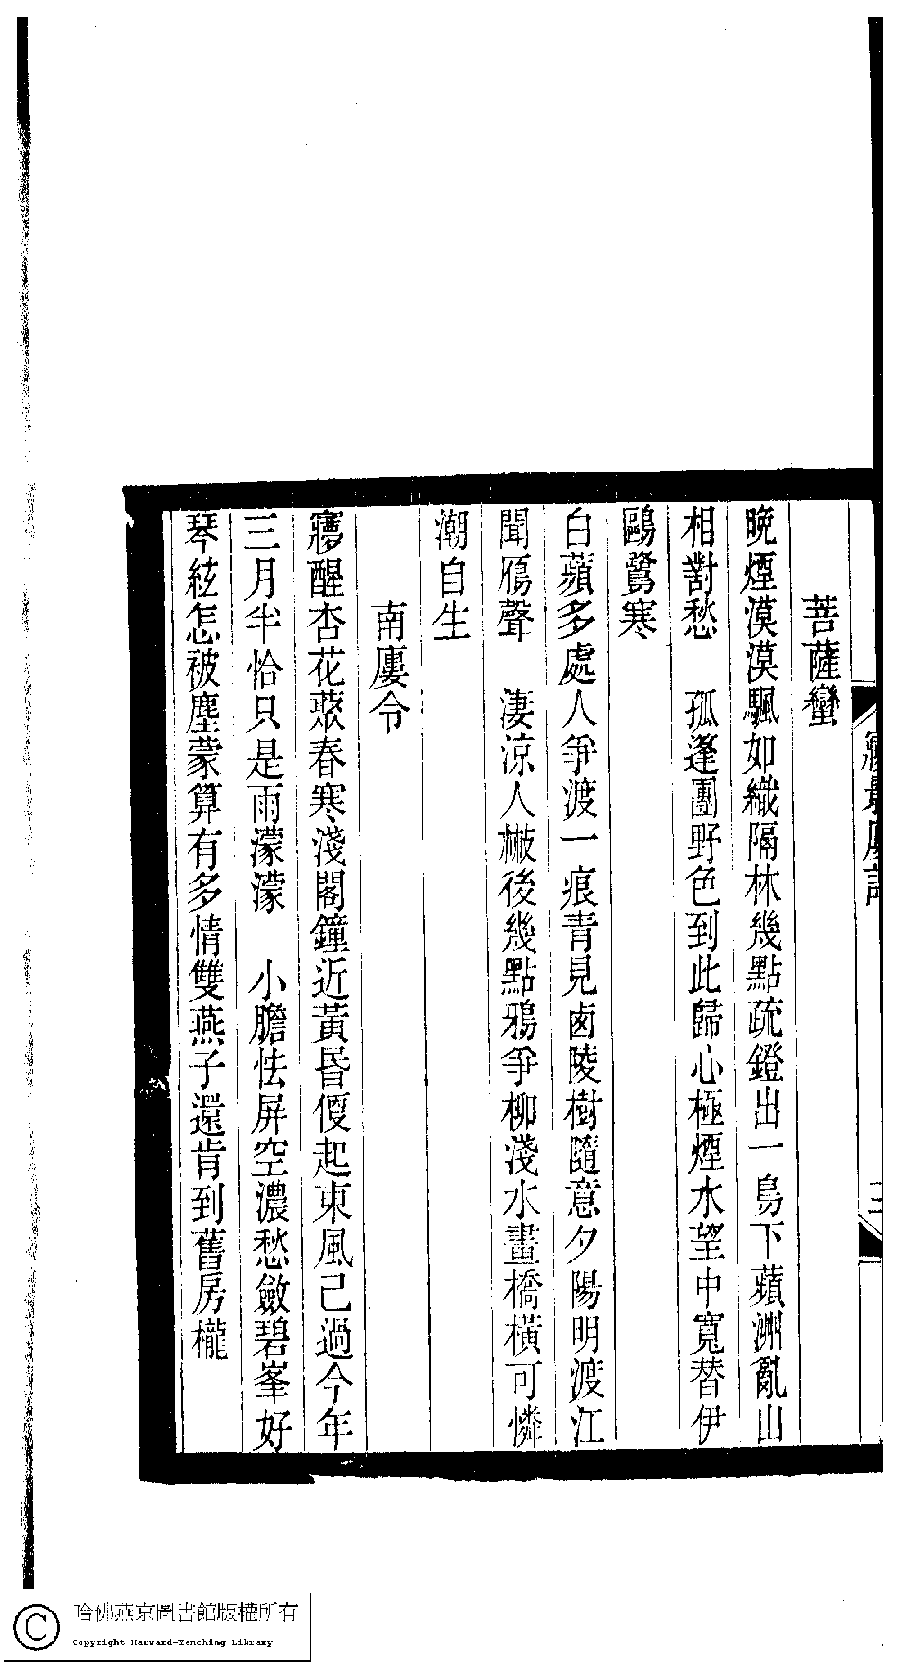 㝱景廔詞
三
菩薩蠻
晚煙漠漠颿如織隔林幾點疏鐙出一鳥下蘋洲亂山
相對愁　孤蓬團野色到此歸心極煙水望中寬替伊
鷗鷺寒
白蘋多處人爭渡一痕青見卤陵樹隨意夕陽明渡江
聞鴈聲　淒涼人㪚後幾點鴉爭柳淺水畫橋橫可憐
潮自生
南廔令
㝱醒杏花叢春寒淺閣鐘近黃昏便起東風已過今年
三月半恰只是雨濛濛　小膽怯屏空濃愁斂碧峯好
琴絃怎被塵蒙算有多情雙燕子還肯到舊房櫳
哈佛燕京圖書館版權所有
Copyright Harvard-Yenching Library